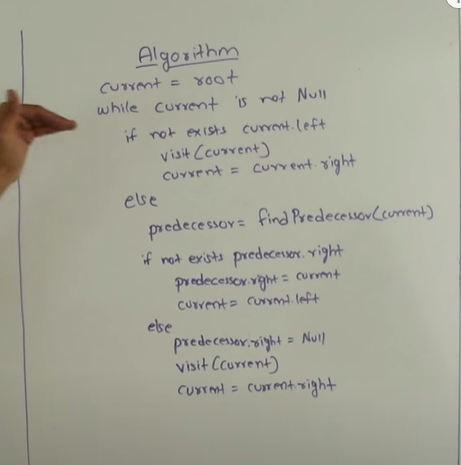 Algorithm
current = root
while current is not Null
if not exists current.left
visit(current)
current = current.right
else
predecessor = findPredecessor(current)
if not exists predecessor.right
predecessor.right = current
current = current.left
else
predecessor.right = Null
visit(current)
current = current.right